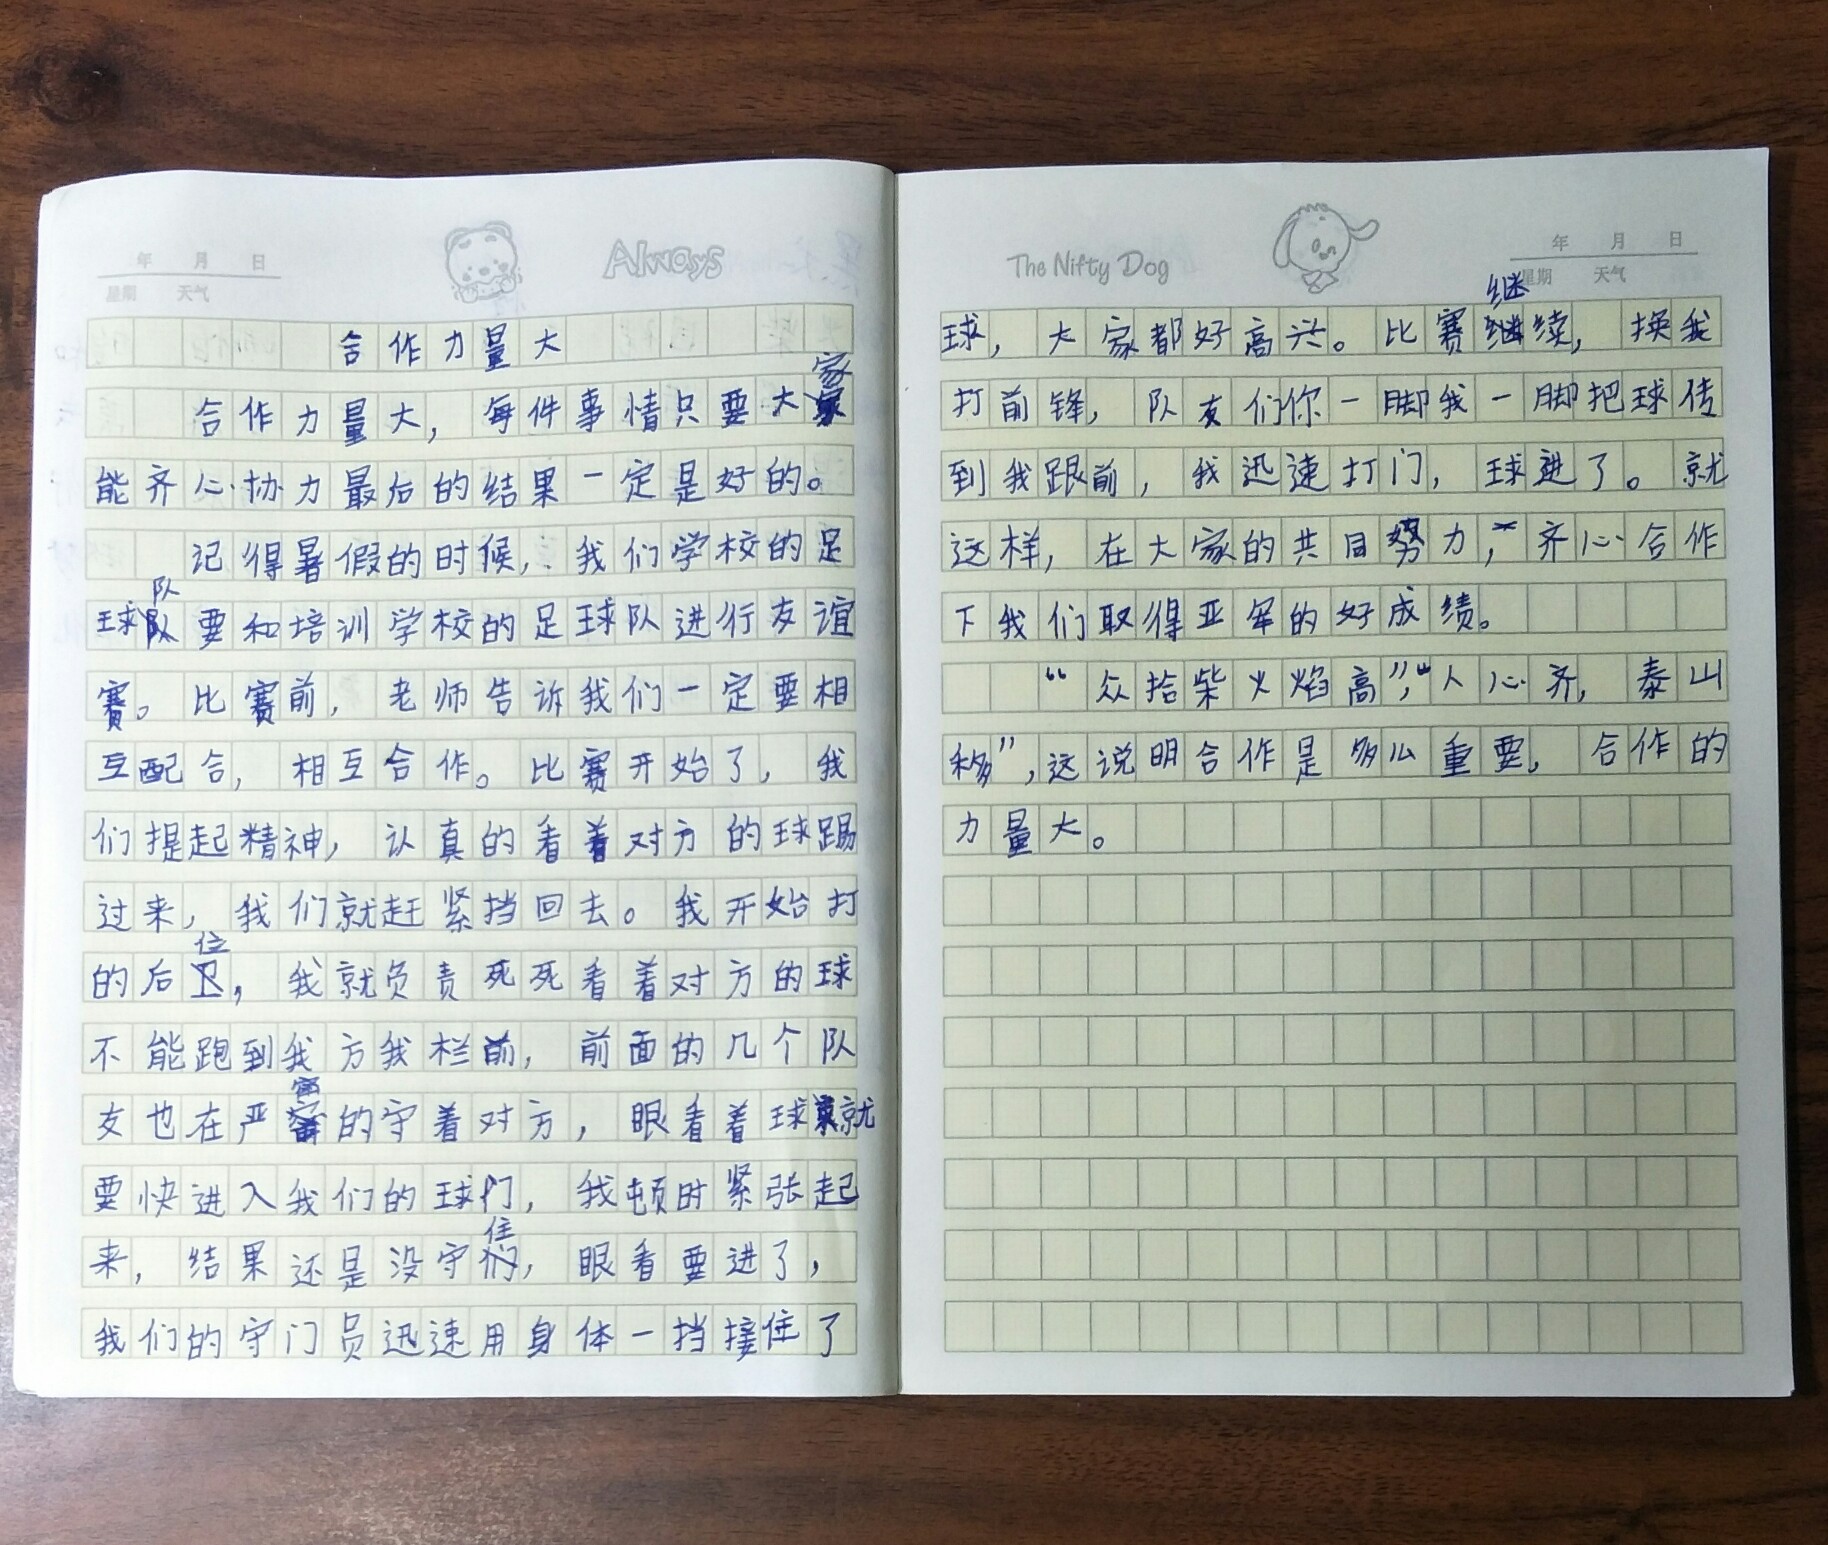 年 月 日
星期 天气
Always
合作力量大
合作力量大，每件事情只要大家
能齐心协力最后的结果一定是好的。
记得暑假的时候，我们学校的足
球队要和培训学校的足球队进行友谊
赛。比赛前，老师告诉我们一定要相
互配合，相互合作。比赛开始了，我
们提起精神，认真的看着对方的球踢
过来，我们就赶紧挡回去。我开始打
的后位，我就负责死死看着对方的球
不能跑到我方我栏前，前面的几个队
友也在严密的守着对方，眼看着球就
要快进入我们的球门，我顿时紧张起
来，结果还是没守住，眼看要进了，
我们的守门员迅速用身体一挡接住了
The Nifty Dog
年 月 日
星期 天气
球，大家都好高兴。比赛继续，换我
打前锋，队友们你一脚我一脚把球传
到我跟前，我迅速打门，球进了。就
这样，在大家的共同努力，齐心合作
下我们取得亚军的好成绩。
“众拾柴火焰高”，“人心齐，泰山
移”，这说明合作是多么重要，合作的
力量大。